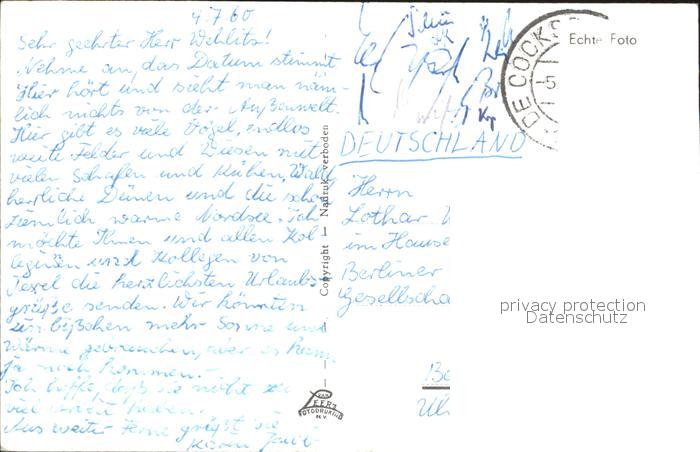 4.7.60
Sehr geehrter Herr Wehlitz!
Nehme an, das Datum stimmt.
Hier hört und sieht man näm-
lich nichts von der Außenwelt.
Hier gibt es viele Vögel, endlos
weite Felder und Wiesen mit
vielen Schafen und Kühen, Wald
herrliche Dünen und die schon
ziemlich warme Nordsee. Ich
möchte Ihnen und allen Kol-
leginnen und Kollegen von
Texel die herzlichsten Urlaubs-
grüße senden. Wir könnten
ein bißchen mehr Sonne und
Wärme gebrauchen, aber es kann
ja noch kommen.-
Ich hoffe, daß sie nicht zu
viel
Aus weiter Ferne grüßt Sie
Karin
Copyright — Nadruk verboden
VAN LEERS
FOTODRUKIND
N.V.
DE COCKS
5
Echte Foto
DEUTSCHLAND
Herrn
Lothar
im Hause
Berliner
Gesellscha
Be
privacy protection
Datenschutz